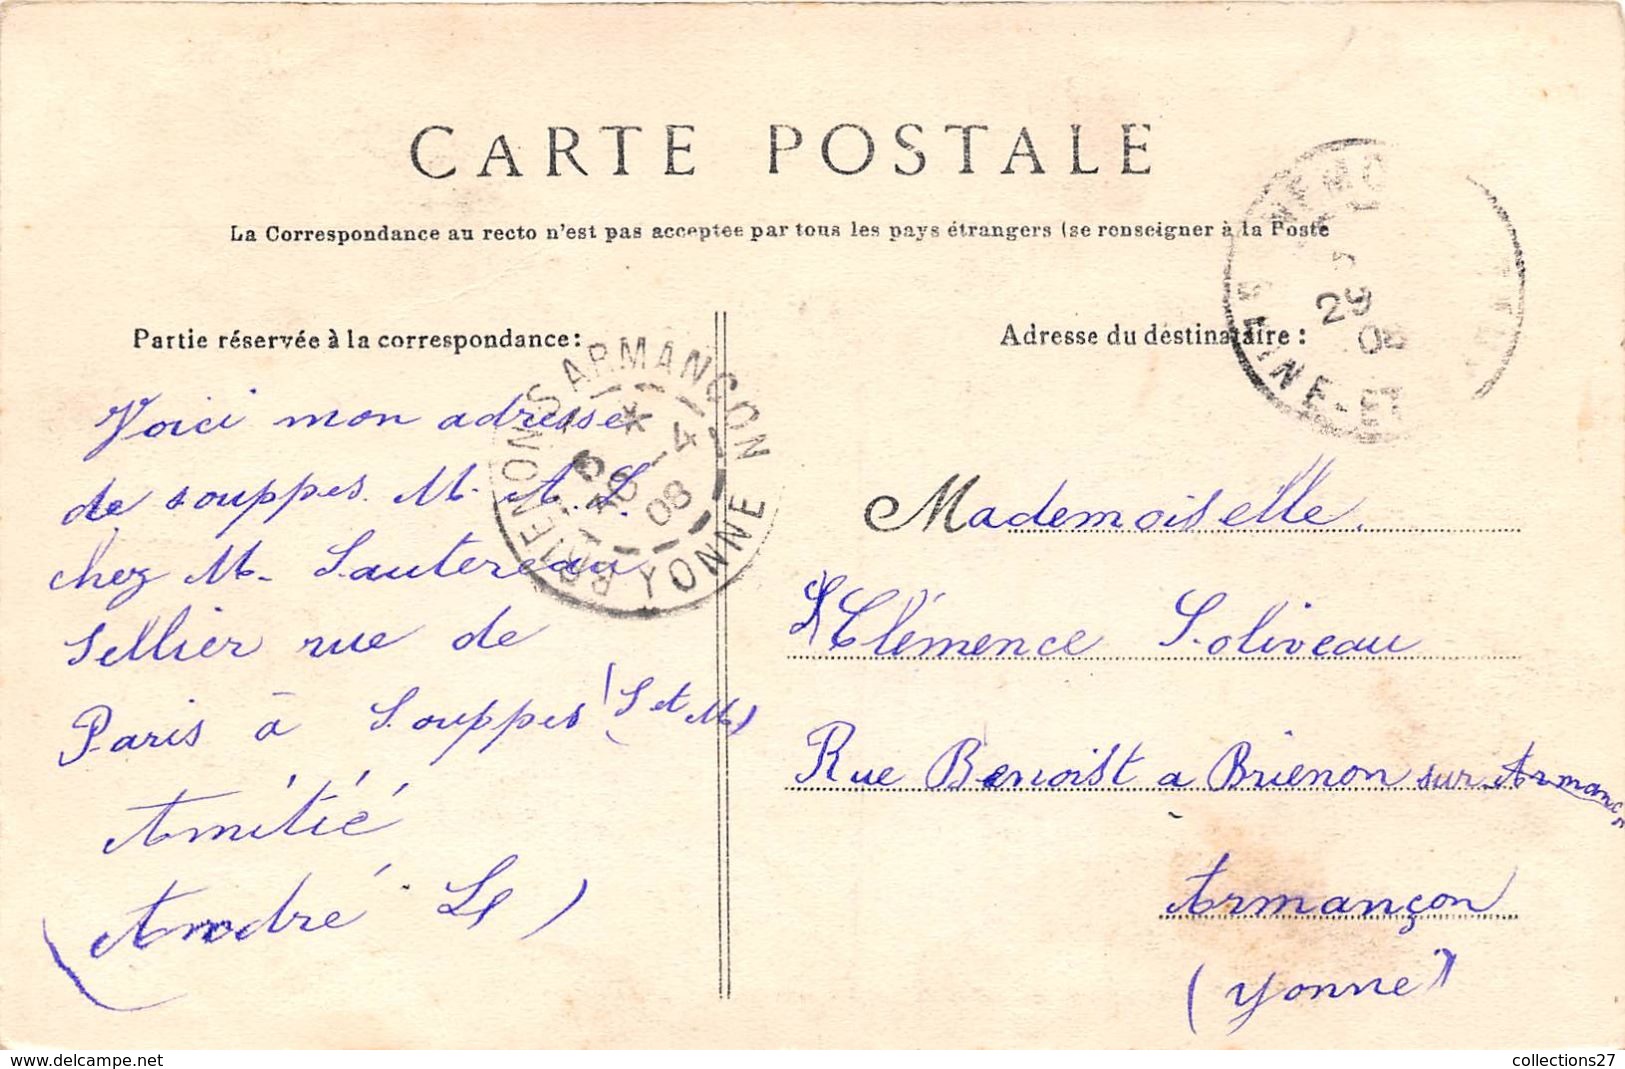 CARTE POSTALE
La Correspondance au recto n'est pas acceptée par tous les pays étrangers (se renseigner à la Poste
Partie réservée à la correspondance:
Voici mon adresse
de souppes. M. A. L.
chez M. Sautereau
Sellier rue de
Paris à Souppes (S et M)
Amitié
(André L)
BRIENON S ARMANÇON
4
08
YONNE
Adresse du destinataire:
NEMO
29
08
SEINE-ET
Mademoiselle
Clémence Soliveau
Rue Benoist a Brienon sur Armanç
Armançon
(Yonne)
collections27